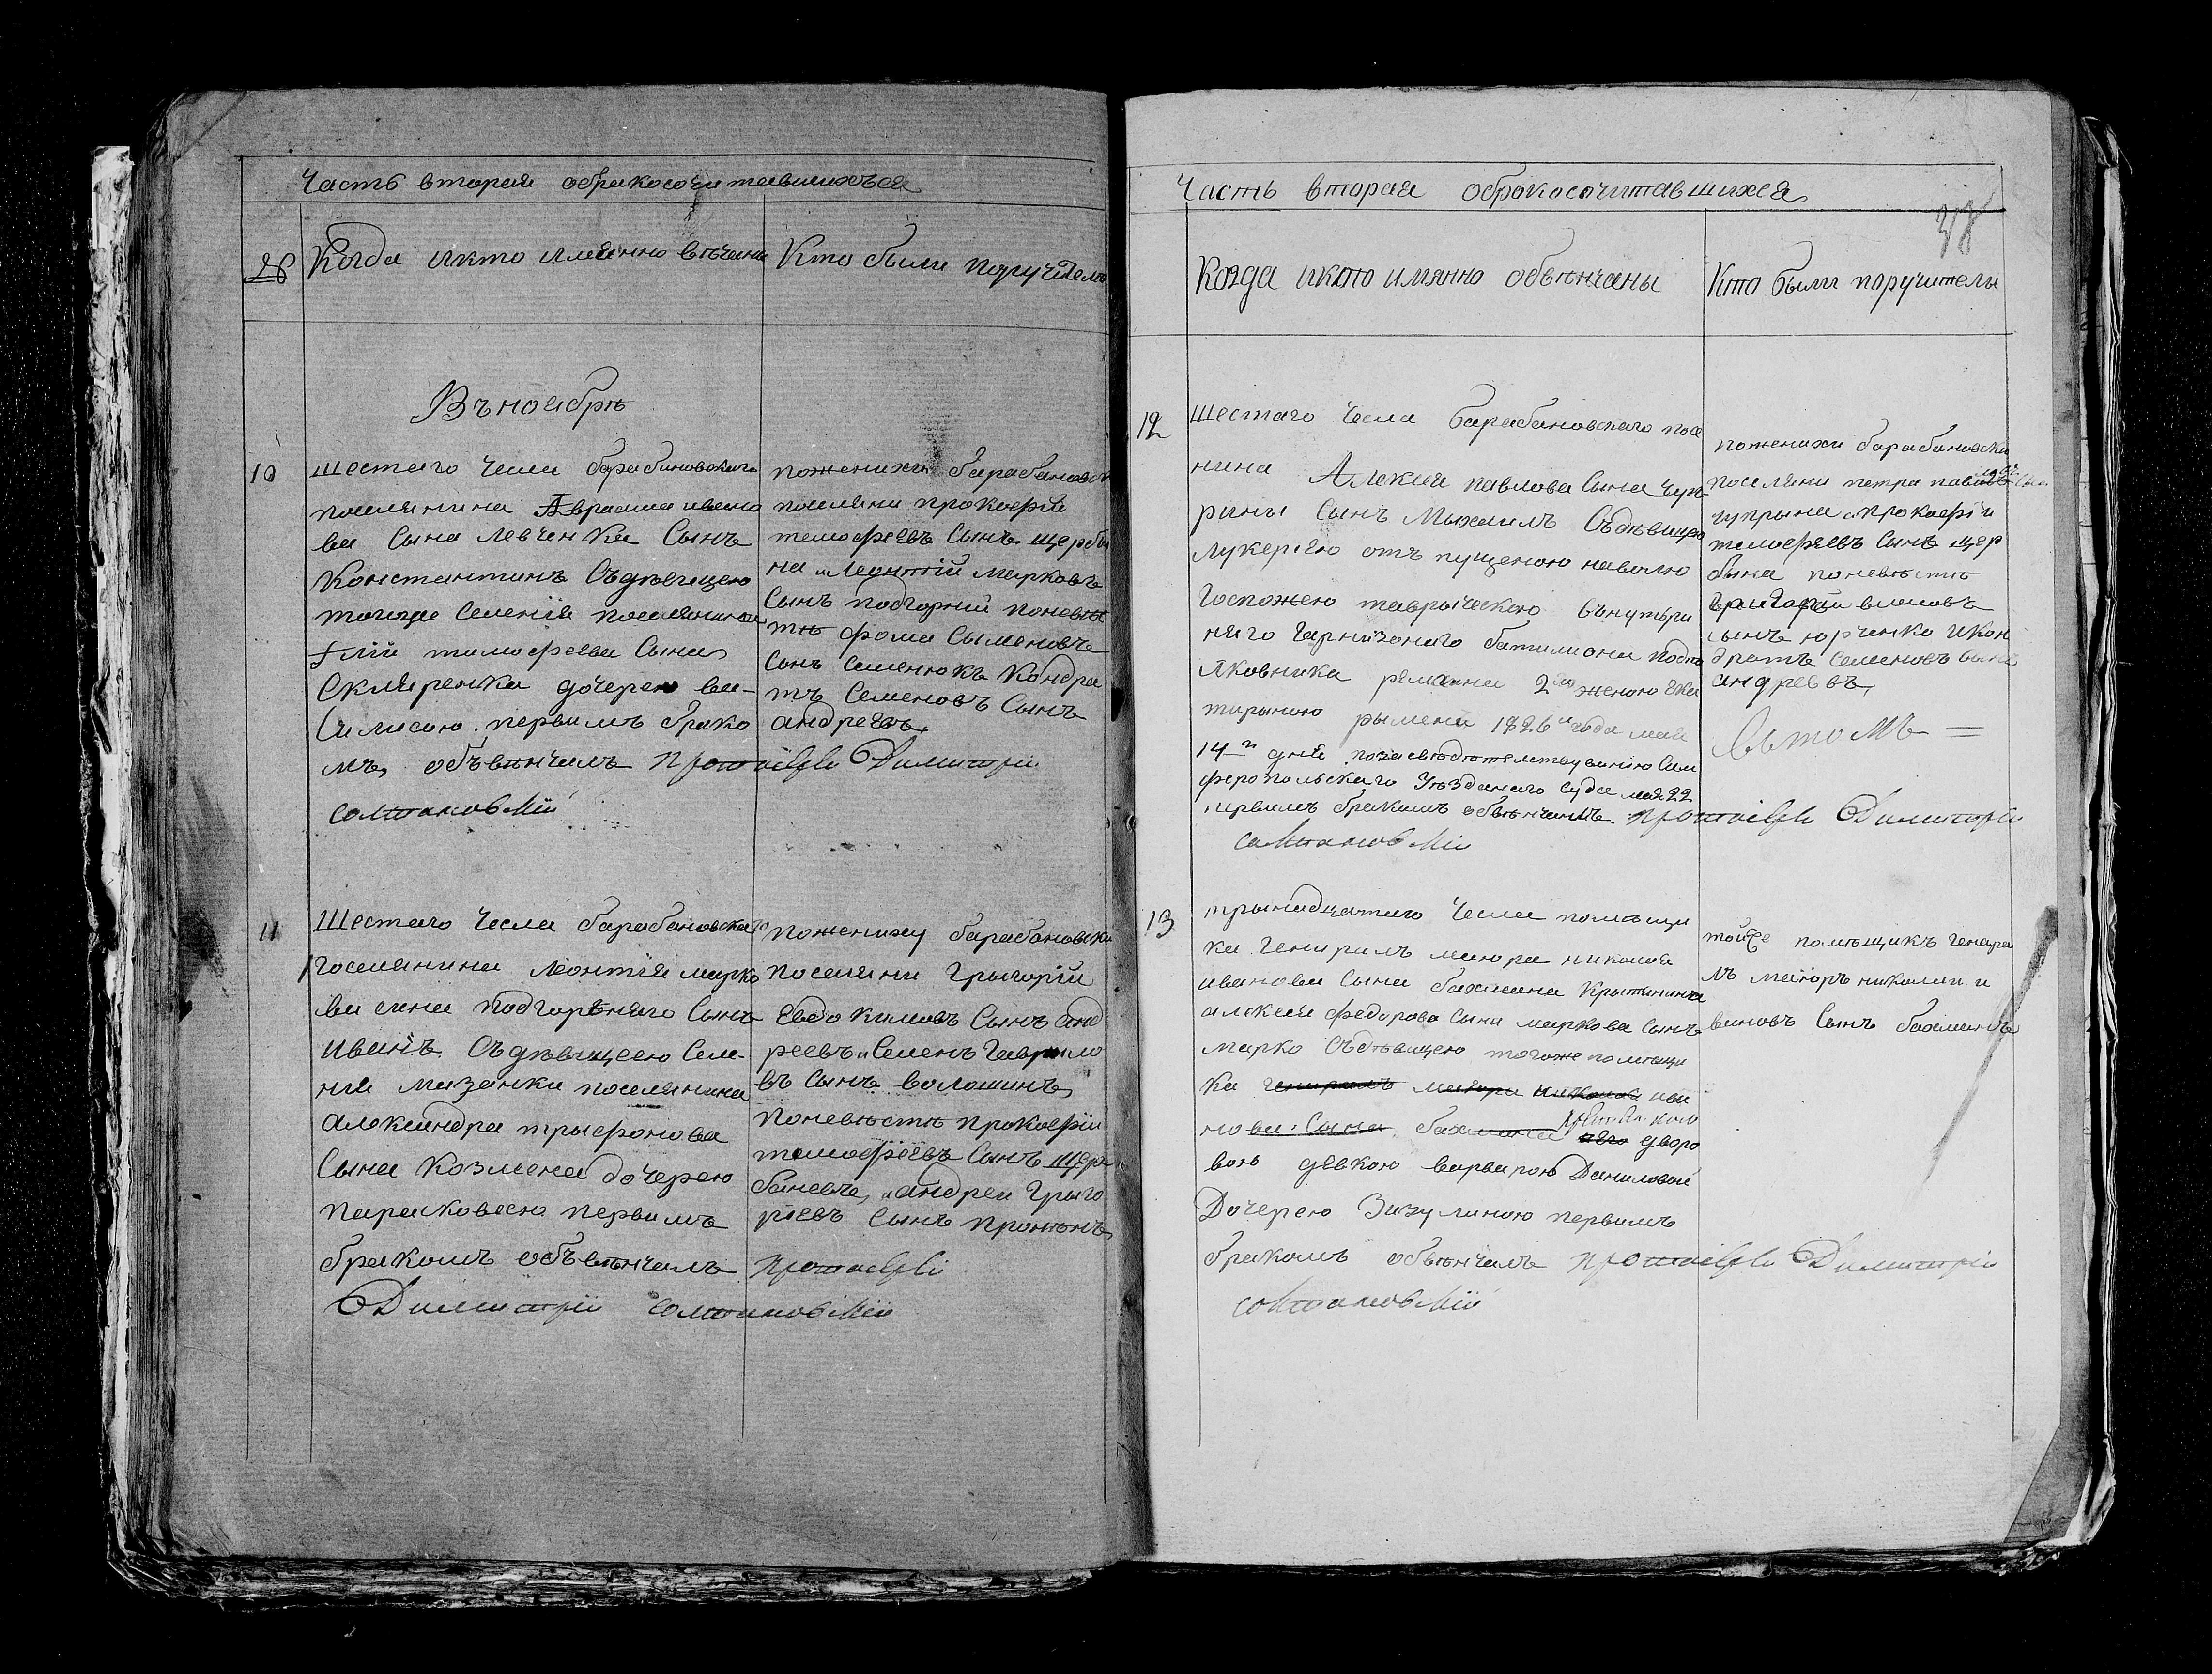 Часть вторая обракосочитавшихъся
№ Когда икто имянно венчаны Кто были поручители
Въ ноябрѣ
10
шестаго числа барабановскаго
поселянина Авраама ивано
ва сына Левченка Сынъ
Константинъ Съдѣвицею
тогоже селения поселянина
тимофеева Сына
Скляренка дочерею ва-
силисою первымъ брако
мъ обѣвѣнчалъ Протоіерей Димитрій
поженихи барабановск
поселяни прокофій
темофѣевъ Сынъ щерби
на и Леонтій марковъ
Сынъ подгорній поневѣс
тѣ фома Сыменовъ
Сынъ семенюкъ Кондра
тъ Семеновъ Сынъ
андреевъ
11
Шестаго числа барабановскаго
поселянина Леонтия марко
ва сина подгорьняго Сынъ
иванъ Съдѣвицею Селе-
ния мазанки поселянина
александра трыфонова
Сына Козмена дочерею
параскевиею первимъ
бракомъ объвѣнчалъ Протоіерей
Димитрій
поженику барабановски
поселяни грыгорій
Евдокимовъ Сынъ анд
реевъ и Семенъ Гаврило
въ Сынъ волошинъ
поневѣстѣ прокофій
темофѣевъ Сынъ щер
баневъ, и андреи грыго
риевъ Сынъ
Часть вторая обракосочитавшихся
38
Когда икто имянно обвѣнчаны Кто были поручители
12
шестаго числа барабановскаго посе
нина Алексия павлова сына чуп-
рины Сынъ Михаилъ Съдѣвицею
лукериею отъпущеною наволю
Госпожею таврическаго вънутри
няго гарнизонаго баталиона подпо
лковника ремана 2ю женою ека
тириною рымана 1826го года мая
14го дня позасвѣдѣтелствуванию Сим
феропольскаго Уѣзднаго Суда мая 22
первимъ бракомъ обвѣнчалъ Протоіерей Димитрій
поженихи барабановски
поселяни петра павлов
чупрына и прокофій
темофѣевъ Сынъ щер
бына поневѣстѣ
Григорій власовъ
сынъ юрченко икон
дратъ семеновъ сынъ
андреевъ
Вътомъ =
13
трынадцатаго числа помѣщи
ка генералъ маиора николая
иванова Сына бахмана Крытянина
алексия федорова Сына маркова Сынъ
марко Съдѣвицею тогоже помѣщи
ка генералъ маиора николая ива
нова Сына бахмана его дворо
вою девкою варварою Даниловой
Дочерею Зизулиною первимъ
бракомъ обвѣнчалъ Протоіерей Димитрій
тойже помѣщикъ генера
лъ маиоръ николаи и
вановъ Сынъ бахманъ